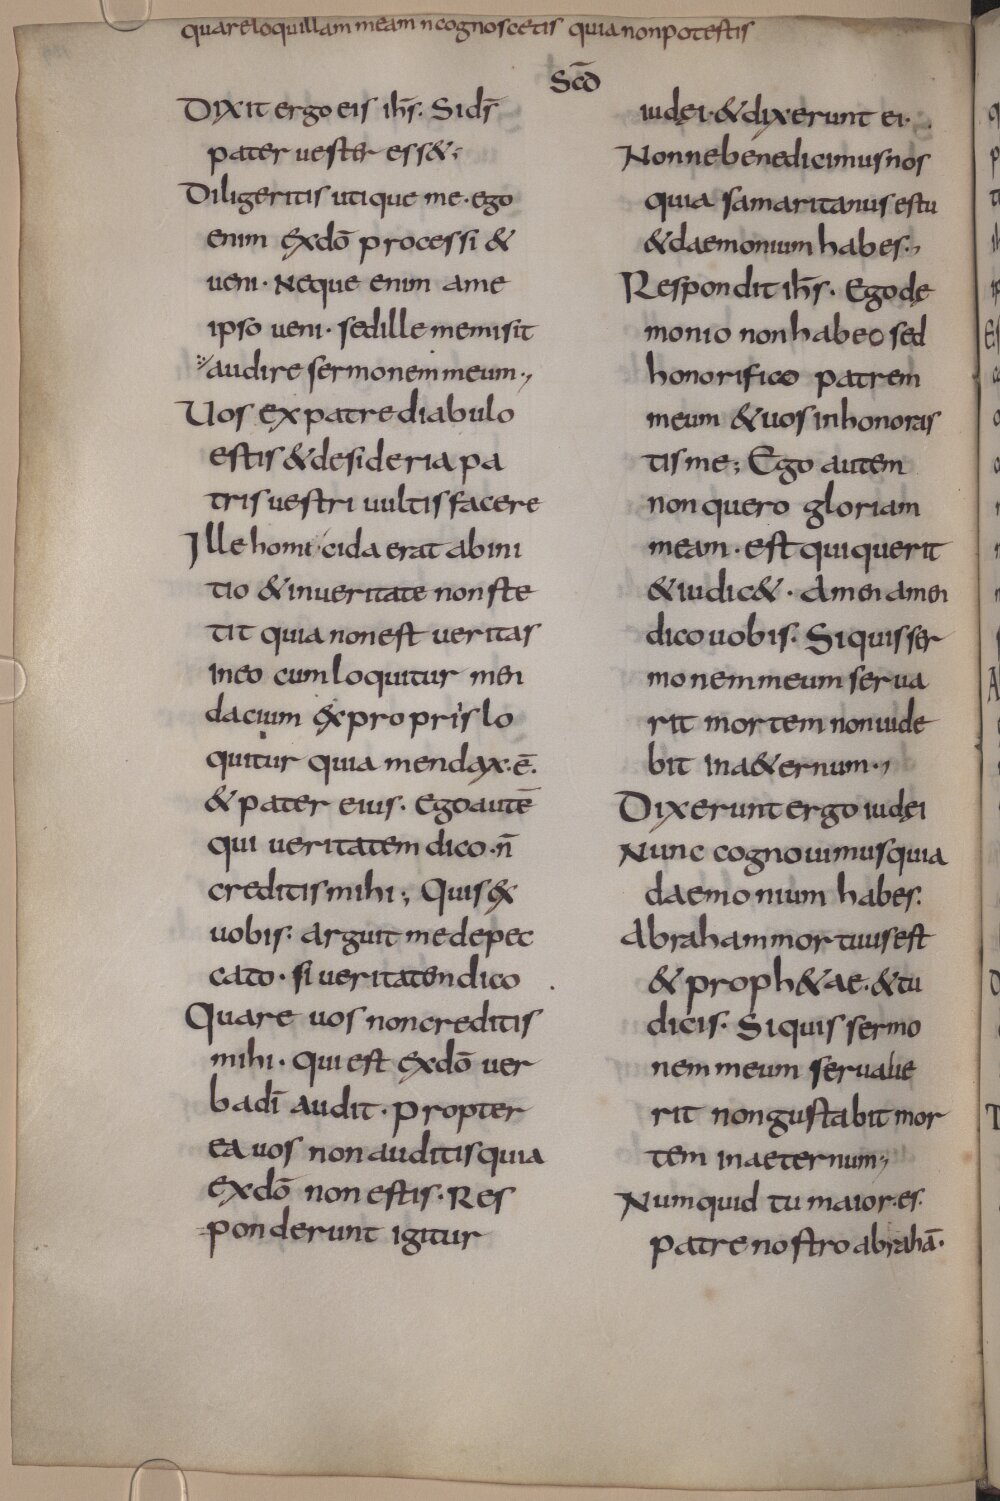 quare loquillam meam n̄ cognoscetis quia non potestis
Scd̄
Dixit ergo eis ih̄s. Si ds̄
pater uester ess&;
Diligeritis utique me. ego
enim exdō processi &
ueni. Neque enim ame
ipso ueni. sed ille me misit
audire sermonem meum.,
Uos ex patre diabulo
estis & desideria pa
tris uestri uultis facere
Ille homicida erat ab ini
tio & in ueritate non ste
tit quia non est ueritas
in eo cum loquitur men
dacium ex propris lo
quitur quia mendax. ē.
& pater eius. Ego autē
qui ueritatem dico. n̄
creditis mihi; Quis ex
uobis. arguit me de pec
cato. si ueritatem dico
Quare uos non creditis
mihi. Qui est exdō uer
ba dī audit. propter
ea uos non auditis quia
exdō non estis. Res
ponderunt igitur
iudęi. & dixerunt ei.
Nonne benedicimus nos
quia samaritanus es tu
& daemonium habes.,
Respondit ih̄s. Ego dę
monio non habeo sed
honorifico patrem
meum & uos inhonoras
tis me; Ego autem
non quero gloriam
meam. est qui querit
& iudic&. Amen amen
dico uobis. Si quis ser
monem meum serua
rit mortem non uide
bit in a&ernum.,
Dixerunt ergo iudęi
Nunc cognouimus quia
daemonium habes.
Abraham mortuus est
& proph&ae. & tu
dicis. Si quis sermo
nem meum seruaue
rit non gustabit mor
tem in aeternum,
Numquid tu maior. es.
patre nostro abrahā.